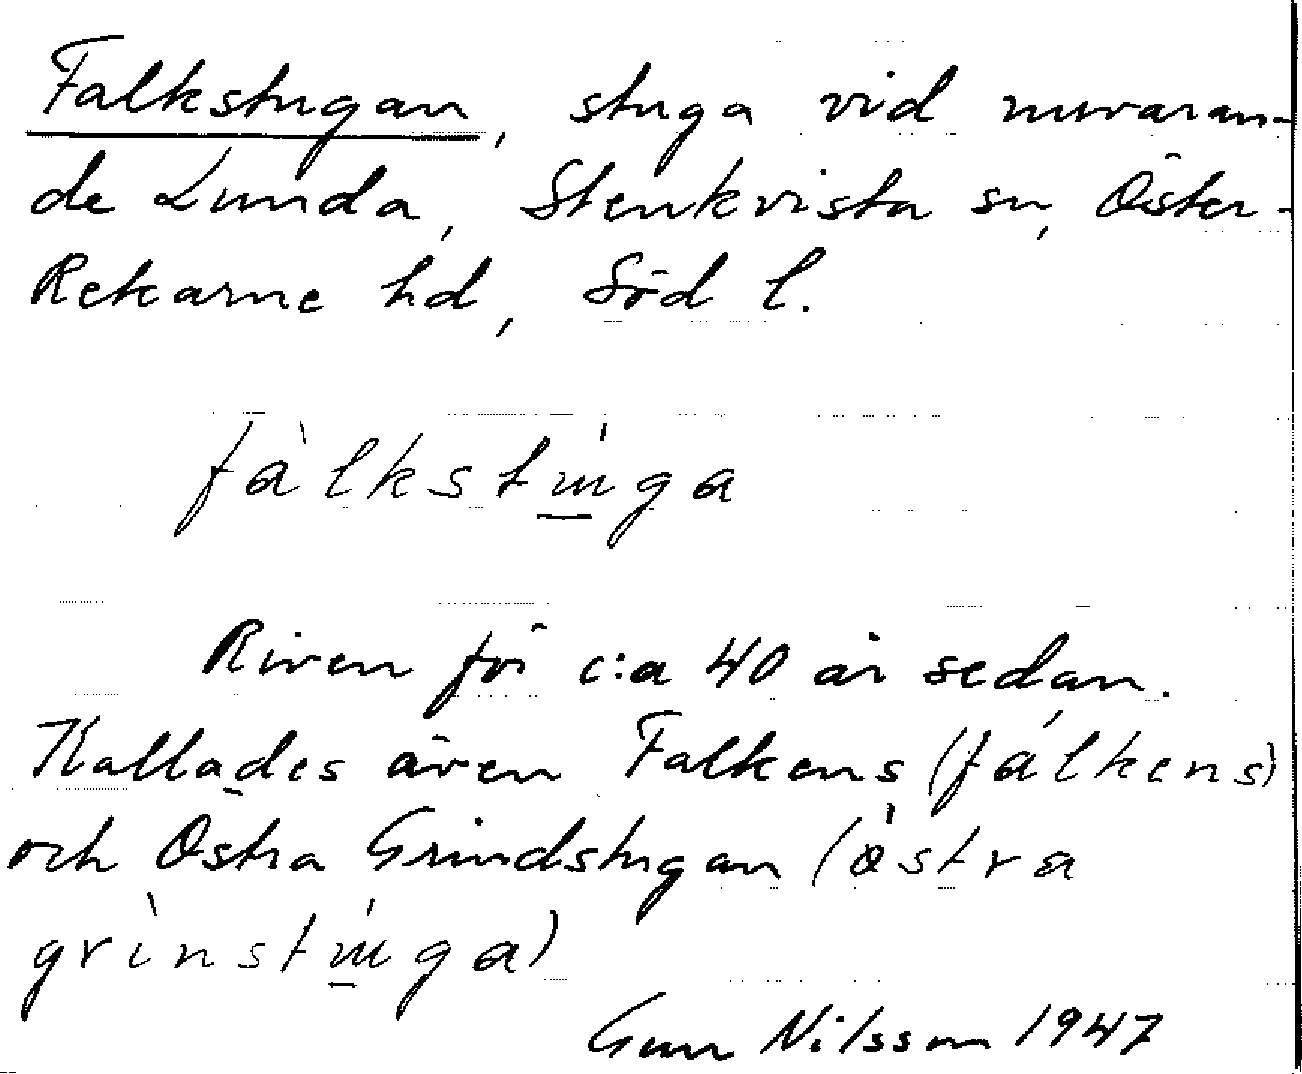 Falkstugan, stuga vid nuvaran-
de Lunda, Stenkvista sn, Öster-
Rekarne hd, Söd l.
fàlkstɯ́ga
Riven för c:a 40 år sedan.
Kallades även Falkens (fálkens)
och Östra Grindstugan (östra
grìnstɯ́ga)
Gun Nilsson 1947